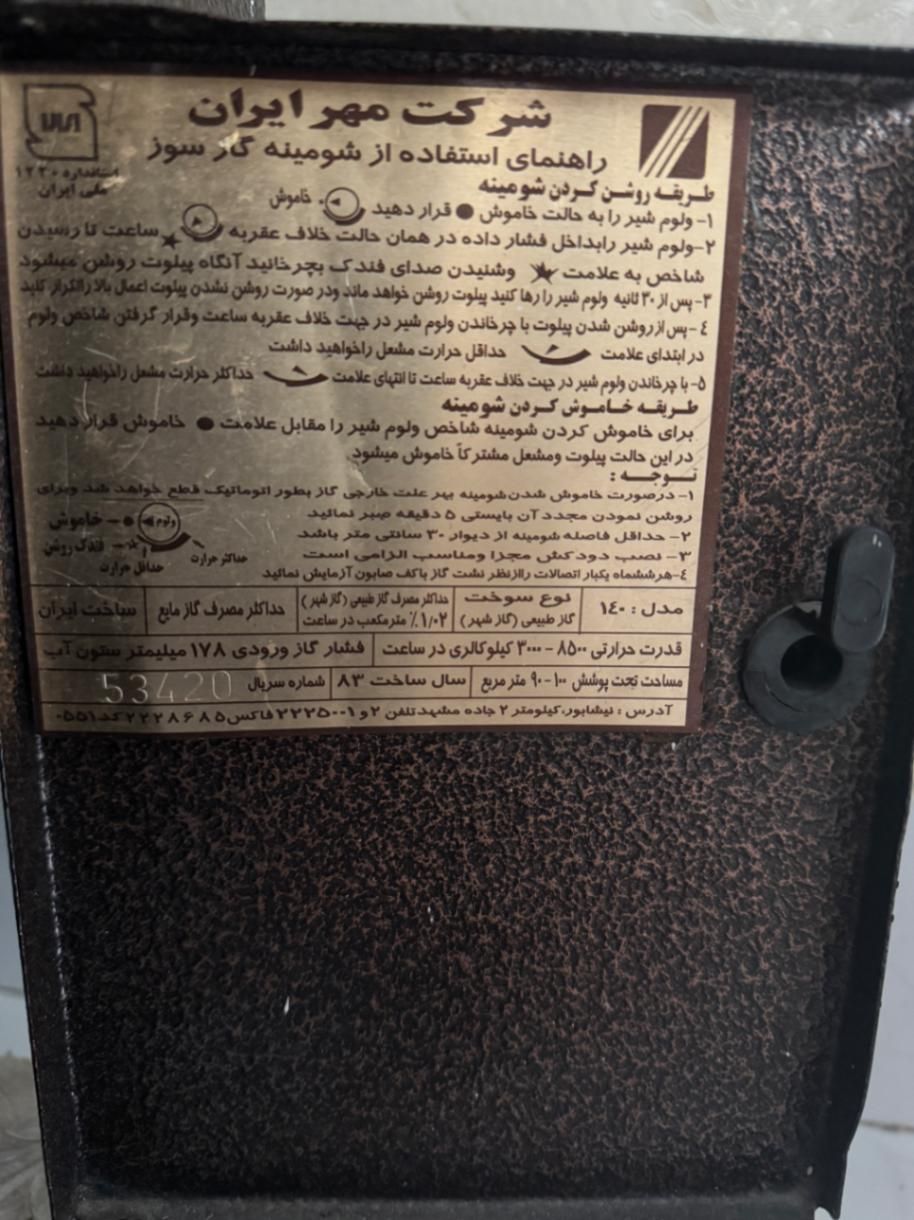 شرکت مهر ایران
راهنمای استفاده از شومینه گاز سوز
استاندارد ۱۲۲۰
ملی ایران
طریقه روشن کردن شومینه
۱- ولوم شیر را به حالت خاموش ● قرار دهید خاموش
۲-ولوم شیر رابداخل فشار داده در همان حالت خلاف عقربه ساعت تا رسیدن
شاخص به علامت ★ وشنیدن صدای فندک بچرخانید آنگاه پیلوت روشن میشود
۳- پس از ۳۰ ثانیه ولوم شیر را رها کنید پیلوت روشن خواهد ماند ودر صورت روشن نشدن پیلوت اعمال بالا راتکرار کنید
۴-پس ازروشن شدن پیلوت با چرخاندن ولوم شیر در جهت خلاف عقربه ساعت وقرار گرفتن شاخص ولوم
در ابتدای علامت حداقل حرارت مشعل راخواهید داشت
۵- با چرخاندن ولوم شیر در جهت خلاف عقربه ساعت تا انتهای علامت حداکثر حرارت مشعل راخواهید داشت
طریقه خاموش کردن شومینه
برای خاموش کردن شومینه شاخص ولوم شیر را مقابل علامت ● خاموش قرار دهید
در این حالت پیلوت ومشعل مشترکاً خاموش میشود
توجه :
۱- درصورت خاموش شدن شومینه بهر علت خارجی گاز بطور اتوماتیک قطع خواهد شد وبرای
روشن نمودن مجدد آن بایستی ۵ دقیقه صبر نمائید
۲- حداقل فاصله شومینه از دیوار ۳۰ سانتی متر باشد
۳- نصب دودکش مجزا ومناسب الزامی است
۴-هرششماه یکبار اتصالات راازنظر نشت گاز باکف صابون آزمایش نمائید
ولوم ● - خاموش
★ - فندک روشن
حداقل حرارت
حداکثر حرارت
مدل : ۱۴۰
نوع سوخت
گاز طبیعی (گاز شهر)
حداکثر مصرف گاز طبیعی (گاز شهر)
۱/۰۲٪ مترمکعب در ساعت
حداکثر مصرف گاز مایع
ساخت ایران
قدرت حرارتی ۸۵۰۰ - ۳۰۰۰ کیلوکالری در ساعت
فشار گاز ورودی ۱۷۸ میلیمتر ستون آب
مساحت تحت پوشش ۱۰۰-۹۰ متر مربع
سال ساخت ۸۳
شماره سریال 53420
آدرس : نیشابور، کیلومتر ۲ جاده مشهد تلفن ۲ و ۲۲۲۵۰۰۱ فاکس ۲۲۲۸۶۸۵ کد ۰۵۵۱